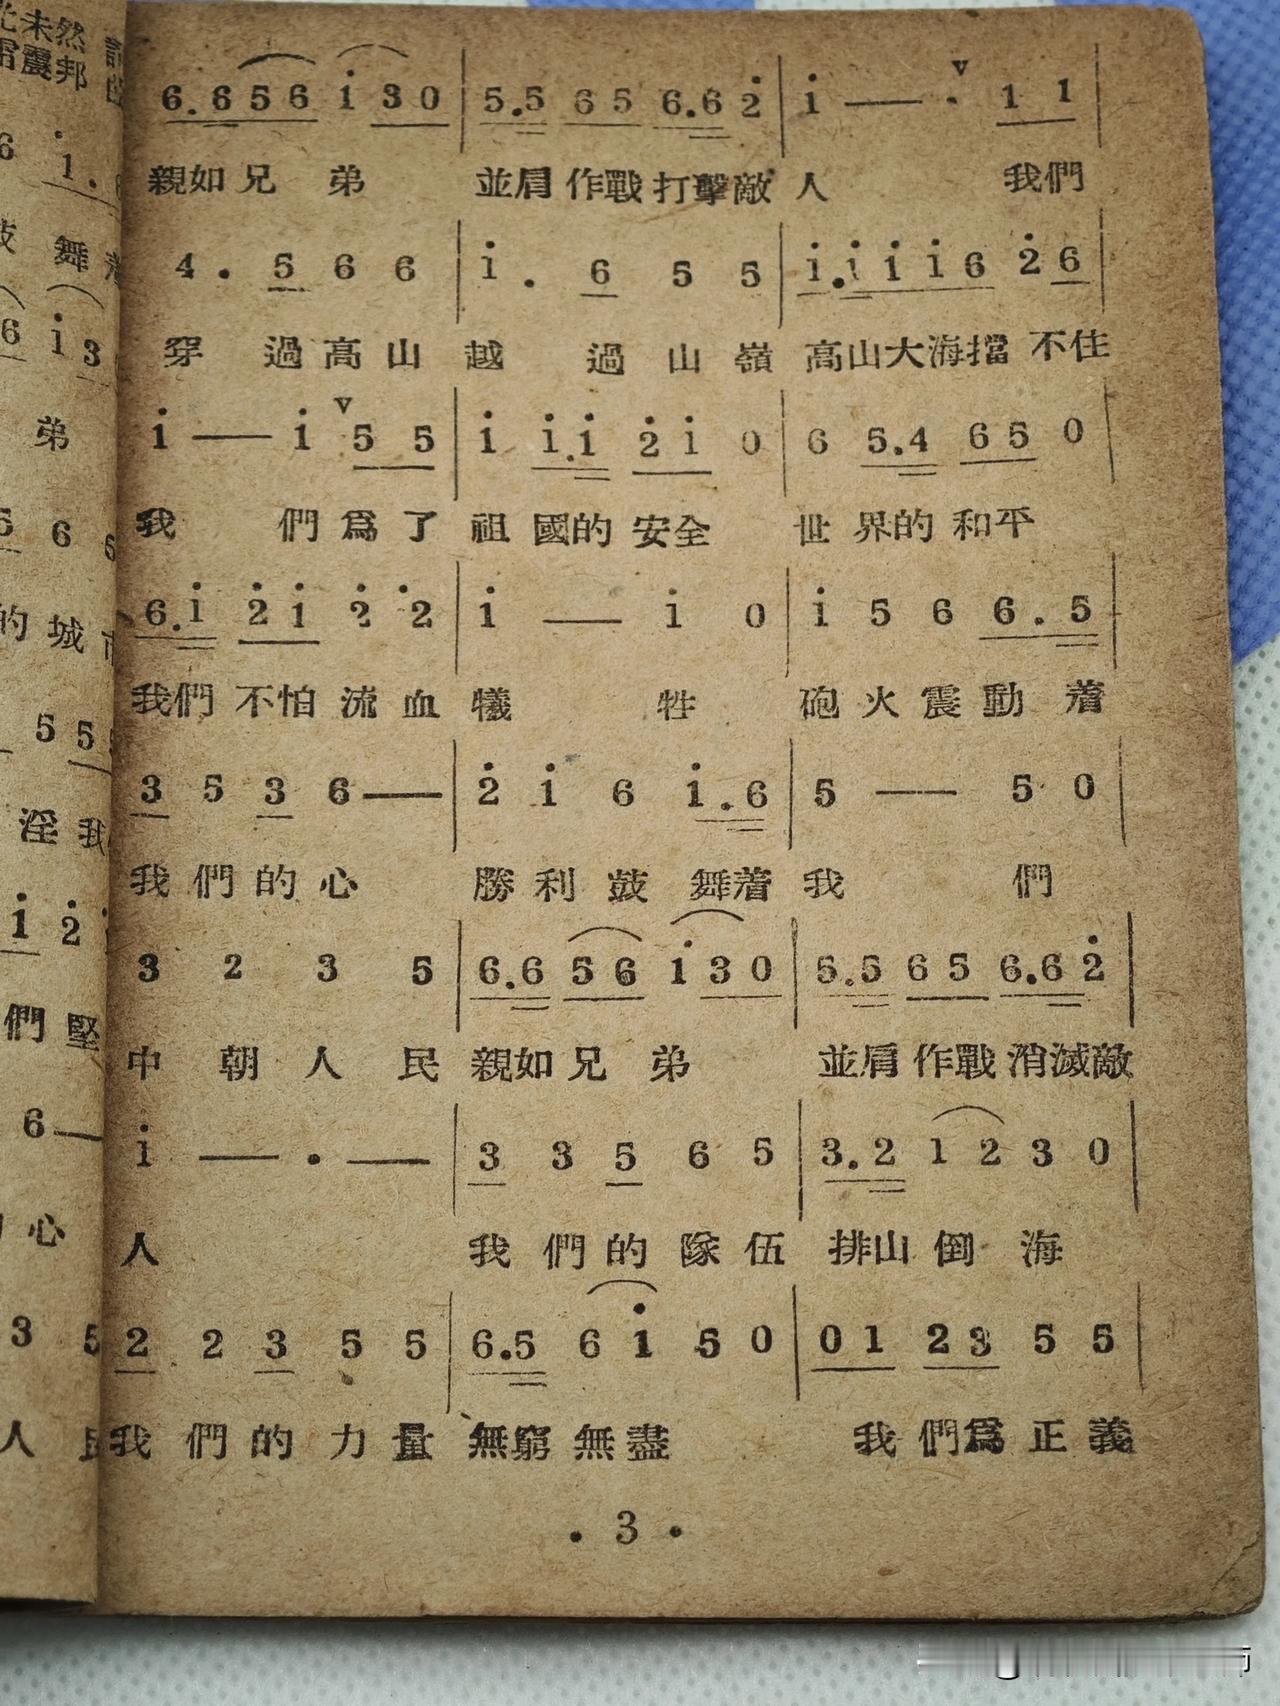 未然
震邦
6.6 5 6 i 3 0 | 5.5 6 5 6.6 2̇ | i —— · ᵛ 1 1 |
親如兄 弟 並肩作戰打擊敵 人 我們
4 . 5 6 6 | i . 6 5 5 | i.i i i 6 2̇ 6 |
穿 過高山 越 過山嶺 高山大海擋 不住
i —— i ᵛ 5 5 | i i.i 2̇ i 0 | 6 5.4 6 5 0
我 們爲了 祖 國的 安全 世 界的 和平
6.i 2̇ i 2̇ 2̇ | i —— i 0 | i 5 6 6.5
我們 不怕 流 血 犧 牲 砲火震動 着
3 5 3 6 —— | 2̇ i 6 i.6 | 5 —— 5 0
我們的心 勝利鼓 舞着 我 們
3 2 3 5 | 6.6 5 6 i 3 0 | 5.5 6 5 6.6 2̇ |
中 朝 人 民 親如兄 弟 並肩作戰消滅敵
i —— · —— | 3 3 5 6 5 | 3.2 1 2 3 0 |
人 我們的隊伍 排山倒 海
2 2 3 5 5 | 6.5 6 i 5 0 | 0 1 2 3 5 5 |
我們的力量 無窮無盡 我們爲正義
· 3 ·
6 i .
舞
6 i 3
弟
6
的城
5 5
淫我
i 2̇
們堅
6 ——
心
3 5
人